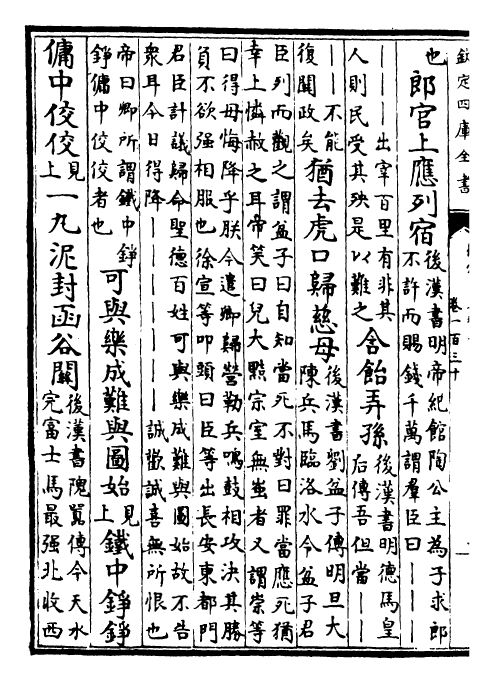 欽定四庫全書
卷一百三十
也 郎官上應列宿 後漢書明帝紀館陶公主為子求郎
不許而賜錢千萬謂羣臣曰————
————出宰百里有非其
人則民受其殃是以難之 含飴弄孫 後漢書明德馬皇
后傳吾但當——
——不能
復闗政矣 猶去虎口歸慈母 後漢書劉盆子傳明旦大
陳兵馬臨洛水令盆子君
臣列而觀之謂盆子曰自知當死不對曰罪當應死猶
幸上憐赦之耳帝笑曰兒大黠宗室無蚩者又謂崇等
曰得毋悔降乎朕今遣卿歸營勒兵鳴鼓相攻決其勝
負不欲强相服也徐宣等叩頭曰臣等出長安東都門
君臣計議歸命聖德百姓可與樂成難與圖始故不告
衆耳今日得降——————誠歡誠喜無所恨也
帝曰卿所謂鐵中錚
錚傭中佼佼者也 可與樂成難與圖始 見上 鐵中錚錚
傭中佼佼 見上 一丸泥封函谷闗 後漢書隗囂傳今天水
完富士馬最强北收西